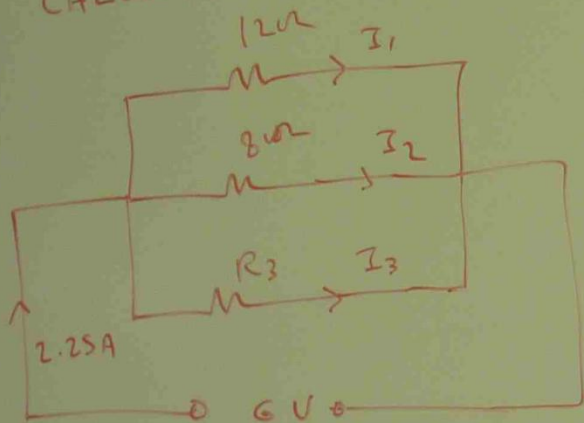 12Ω I1
8Ω I2
R3 I3
2.25A
6 V